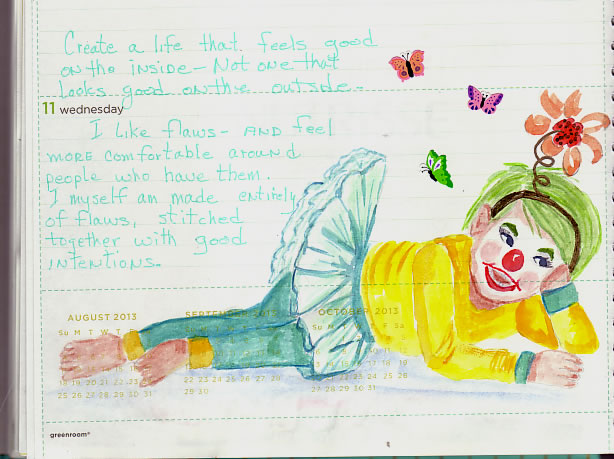 Create a life that feels good
on the inside - Not one that
looks good on the outside -
11 wednesday
I like flaws - AND feel
more comfortable around
people who have them.
I myself am made entirely
of flaws, stitched
together with good
intentions.
AUGUST 2013
Su M T W T
18 19 20 21 22 23
25 26 27 28 29 30 31
SEPTEMBER 2013
22 23 24 25 26 27 28
29 30
OCTOBER 2013
Su M T W T F Sa
27 28 29 30 31
greenroom®